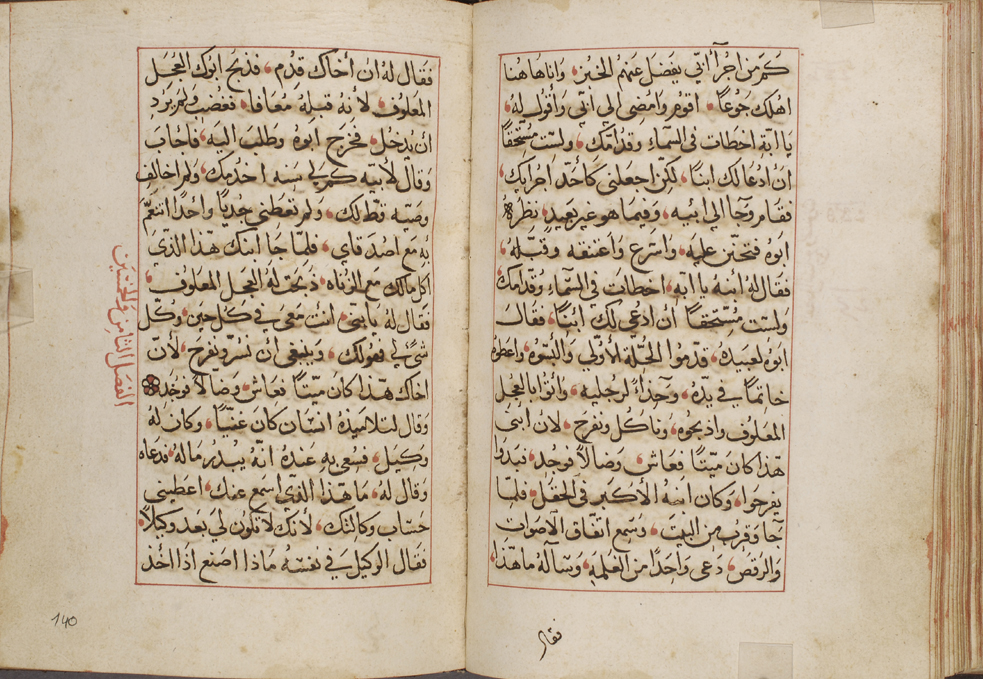 كم من اجرآ أتي يفضل عنهم الخبز وانا هاهنا
اهلك جوعاً اقوم وامضى الي ابي واقول له
يا ابة اخطات في السمآء وقدامك ولست مستحقاً
ان ادعا لك ابناً لكن اجعلني كأحد اجرايك
فقام وجا الي ابيه وفيما هو غير بعيد نظره
ابوه فتحنن عليه واسرع واعتنقه وقبله
فقال له أبنه يا ابه اخطات في السمآء وقدامك
ولست مستحقاً ان ادعي لك ابناً فقال
ابوه لعبيده قدموا الحلة الأولي والبسوه واعطوه
خاتماً في يده وحذآء لرجليه وأتوا بالعجل
المعلوف واذبحوه وناكل ونفرح لان ابني
هذا كان ميتاً فعاش وضالاً فوجد فبدوا
يفرحوا وكان ابنه الأكبر في الحقل فلما
جا وقرب من البيت وسمع اتفاق الأصوات
والرقص دعى واحداً من الغلمه وسآله ما هذا
فقال
فقال له ان أخاك قدم فذبح ابوك العجل
المعلوف لأنه قبله معافا فغضب ولم يرد
أن يدخل فخرج ابوه وطلب اليه فاجاب
وقال لأبيه كم لي سنه اخدمك ولم اخالف
وصيه قط لك ولم تعطني جدياً واحداً اتنعم
به مع اصدقاي فلما جا ابنك هذا الذى
اكل مالك مع الزناه ذبحت له العجل المعلوف
فقال له يا بني أنت معي في كل حين وكل
شي لي فهو لك وينبغى ان نسر ونفرح لأن
اخاك هذا كان ميتاً فعاش وضالاً فوجد
وقال لتلاميذه انسان كان غنياً وكان له
وكيل فسعي به عنده انه يبذر ماله فدعاه
وقال له ما هذا الذي اسمع عنك اعطيني
حساب وكالتك لأنك لا تكون لي بعد وكيلاً
فقال الوكيل في نفسه ماذا اصنع اذا اخذ
الفصل الثامن والخمسين
140